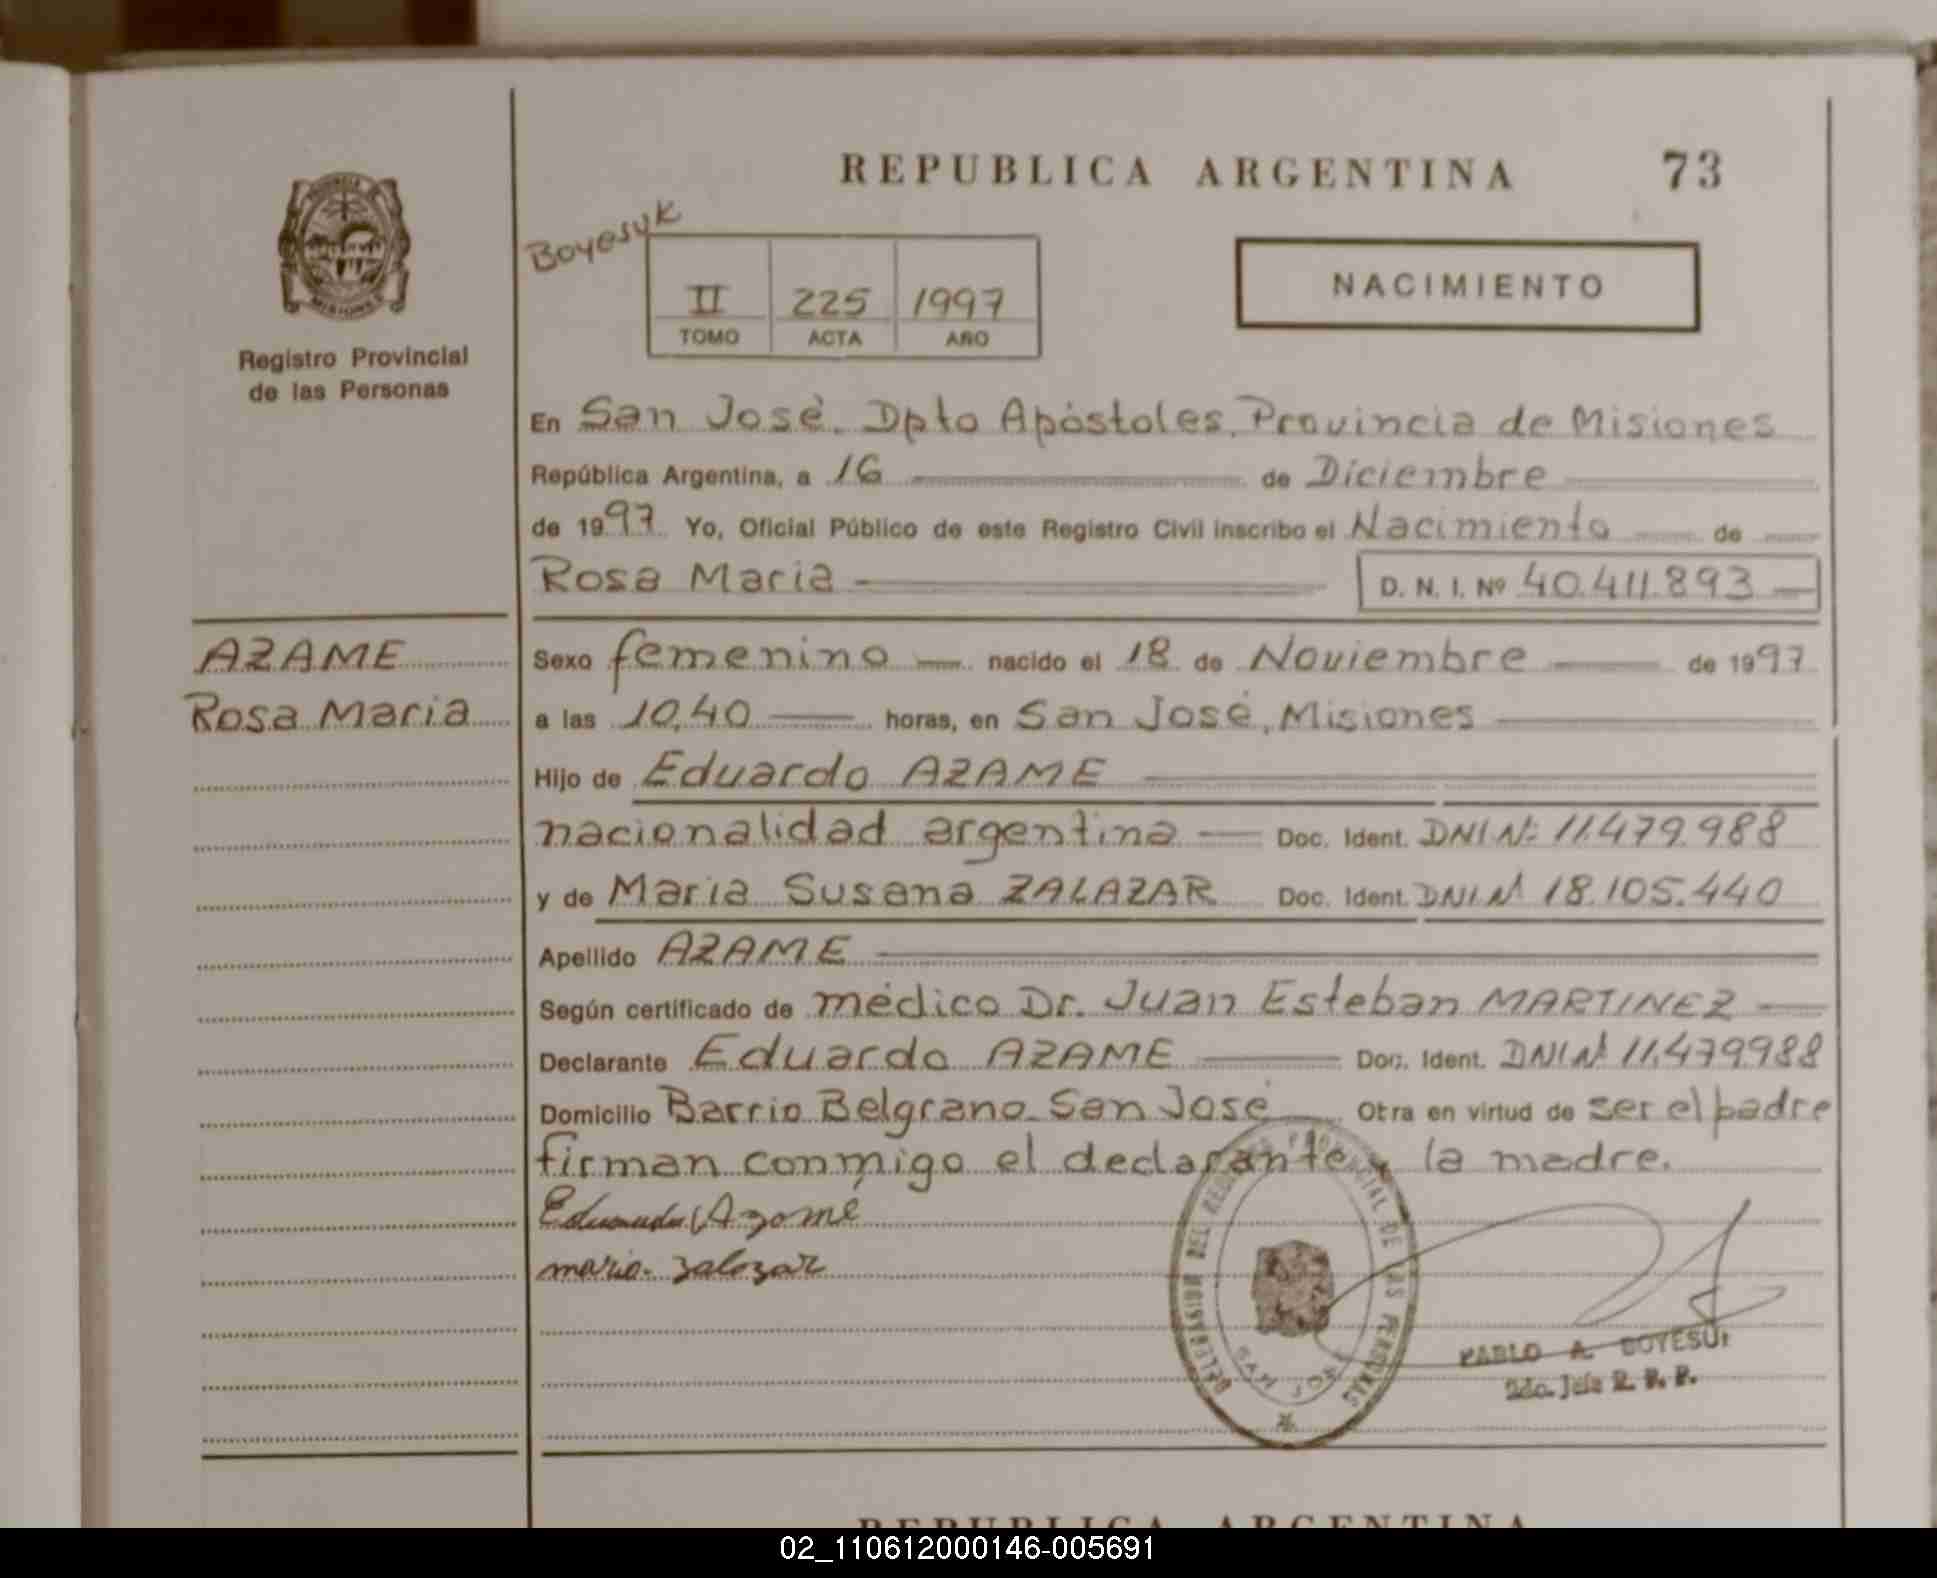 REPUBLICA ARGENTINA 73
Boyesuk
II 225 1997
TOMO ACTA AÑO
NACIMIENTO
PROVINCIA DE
MISIONES
Registro Provincial
de las Personas
En San José. Dpto Apóstoles. Provincia de Misiones
República Argentina, a 16 de Diciembre
de 1997 Yo, Oficial Público de este Registro Civil inscribo el Nacimiento de
Rosa Maria D. N. I. Nº 40.411.893
AZAME
Rosa Maria
Sexo femenino nacido el 18 de Noviembre de 1997
a las 10,40 horas, en San José, Misiones
Hijo de Eduardo AZAME
nacionalidad argentina Doc. Ident. DNI Nº 11.479.988
y de Maria Susana ZALAZAR Doc. Ident. DNI Nº 18.105.440
Apellido AZAME
Según certificado de médico Dr. Juan Esteban MARTINEZ
Declarante Eduardo AZAME Doc. Ident. DNI Nº 11.479.988
Domicilio Barrio Belgrano San José Otra en virtud de ser el padre
firman conmigo el declarante y la madre.
Eduardo Azame
maria zalazar
DELEGACION DEL REGISTRO PROVINCIAL DE LAS PERSONAS
SAN JOSE
PABLO A. BOYESUK
2do. Jefe R. P. P.
REPUBLICA ARGENTINA
02_110612000146-005691